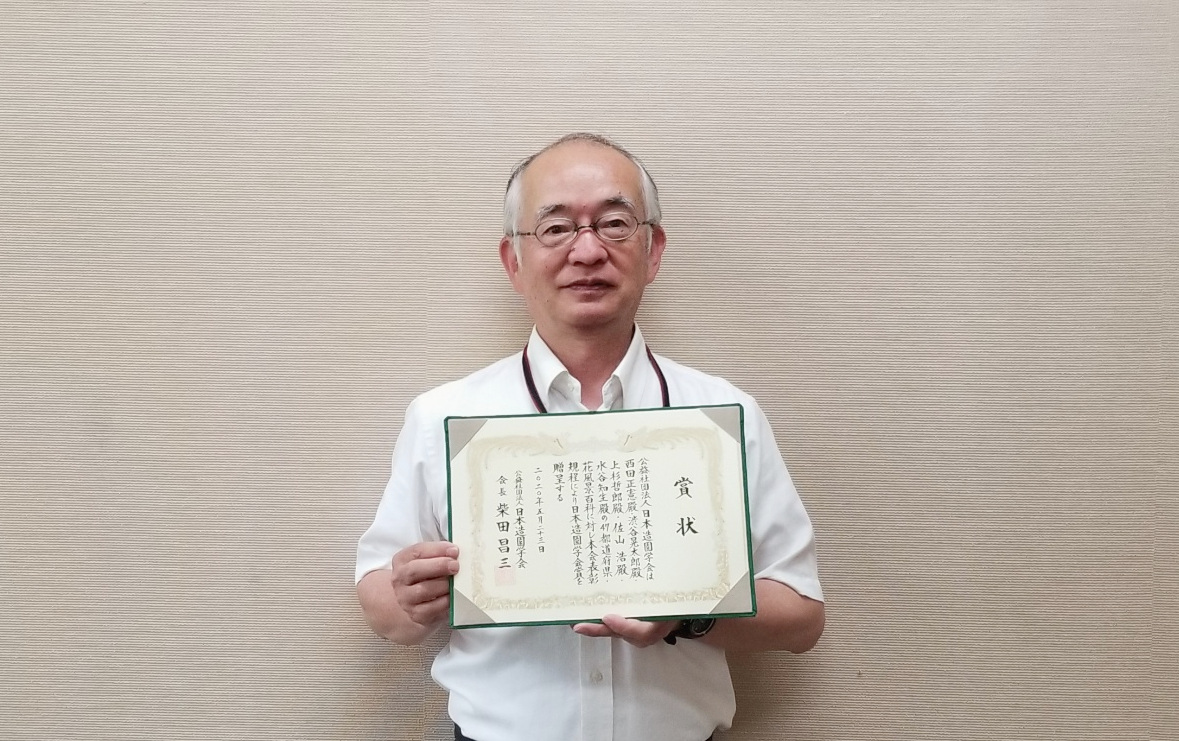 賞状
公益社団法人日本造園学会は
西田正憲殿・渋谷晃太郎殿・
上杉哲郎殿・佐山 浩殿・
水谷知生殿の47都道府県・
花風景百科に対し本会表彰
規程により日本造園学会賞を
贈呈する
二〇二〇年五月二十三日
公益社団法人日本造園学会
会長 柴田昌三